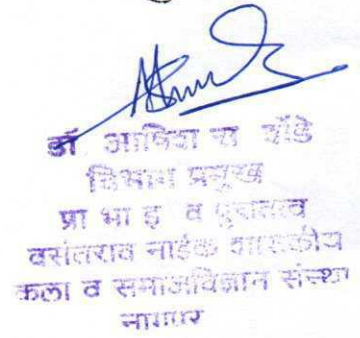 डॉ आशिश रा शेंडे
विभाग प्रमुख
प्रा भा इ व पुरातत्व
वसंतराव नाईक शासकीय
कला व समाजविज्ञान संस्था
नागपूर